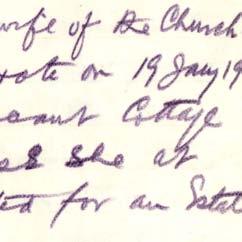 wife of the Church
on 19 Jany 19
Cottage
She at
for an Estat